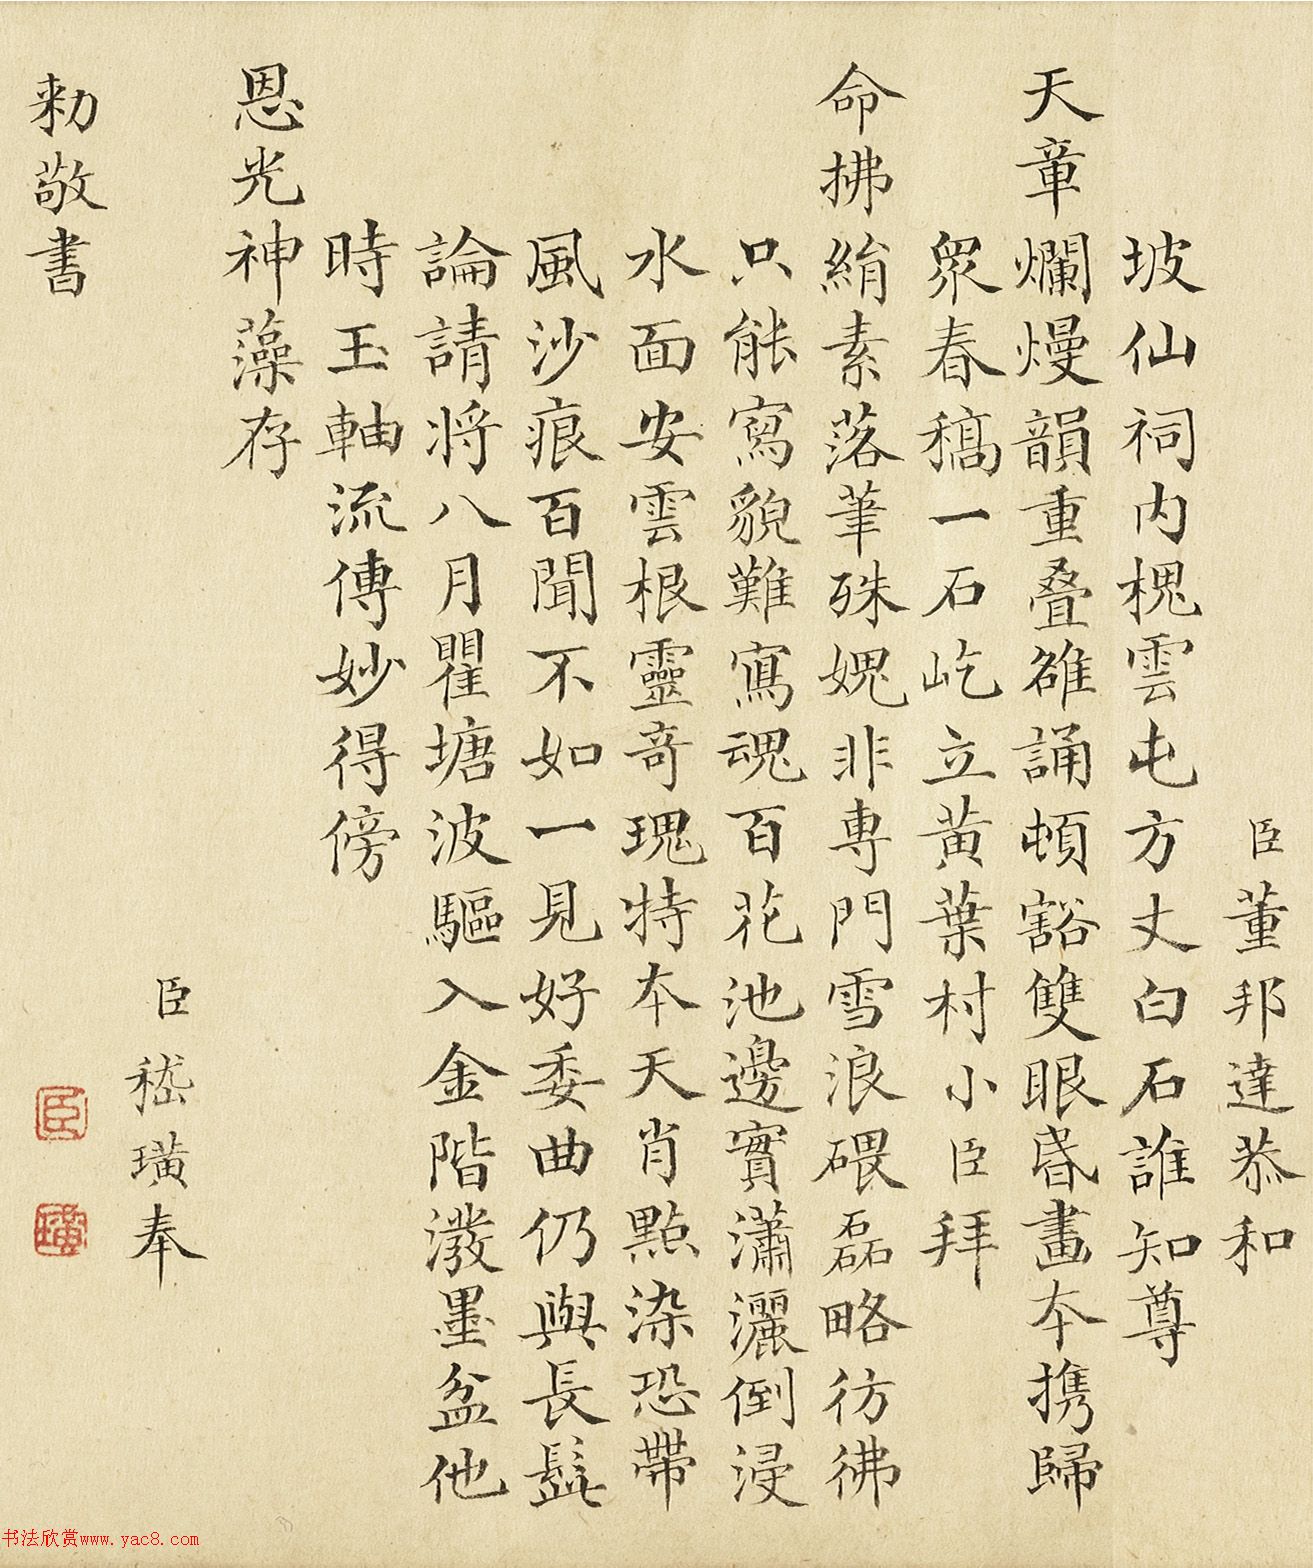 臣董邦達恭和
坡仙祠内槐雲屯方丈白石誰知尊
天章爛熳韻重叠雒誦頓豁雙眼昏畫本攜歸
眾春稿一石屹立黃葉村小臣拜
命拂絹素落筆殊媿非專門雪浪碨磊略彷彿
只能寫貌難寫魂百花池邊實瀟灑倒浸
水面安雲根靈奇瑰特本天肖點染恐帶
風沙痕百聞不如一見好委曲仍與長髯
論請將八月瞿塘波驅入金階潑墨盆他
時玉軸流傳妙得傍
恩光神藻存
臣嵇璜奉
勅敬書
臣
璜
书法欣赏www.yac8.com